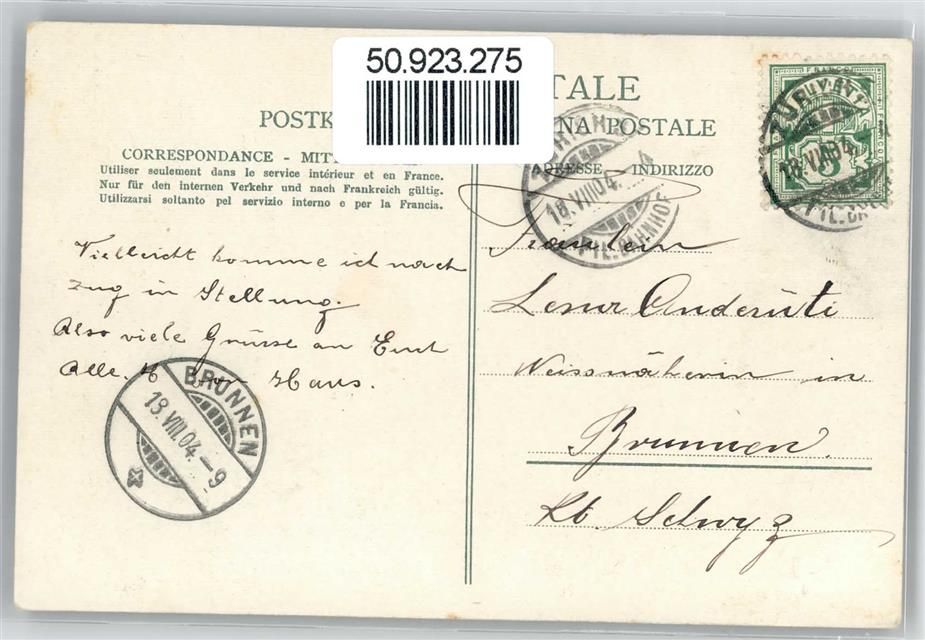 50.923.275
TALE
POSTK
NA POSTALE
CORRESPONDANCE - MITT
Utiliser seulement dans le service intérieur et en France.
Nur für den internen Verkehr und nach Frankreich gültig.
Utilizzarsi soltanto pel servizio interno e per la Francia.
ADRESSE INDIRIZZO
FRANCO
5
18.VIII.04
18.VIII.04.
FIL.BAHNHOF
Vielleicht komme ich nach
Zug in Stellung.
Also viele Grüsse an Euch
Alle. Hans.
BRUNNEN
18.VIII.04.-9
Fraeulein
Lenur Anderüti
Weissnäherin in
Brunnen
Kt. Schwyz